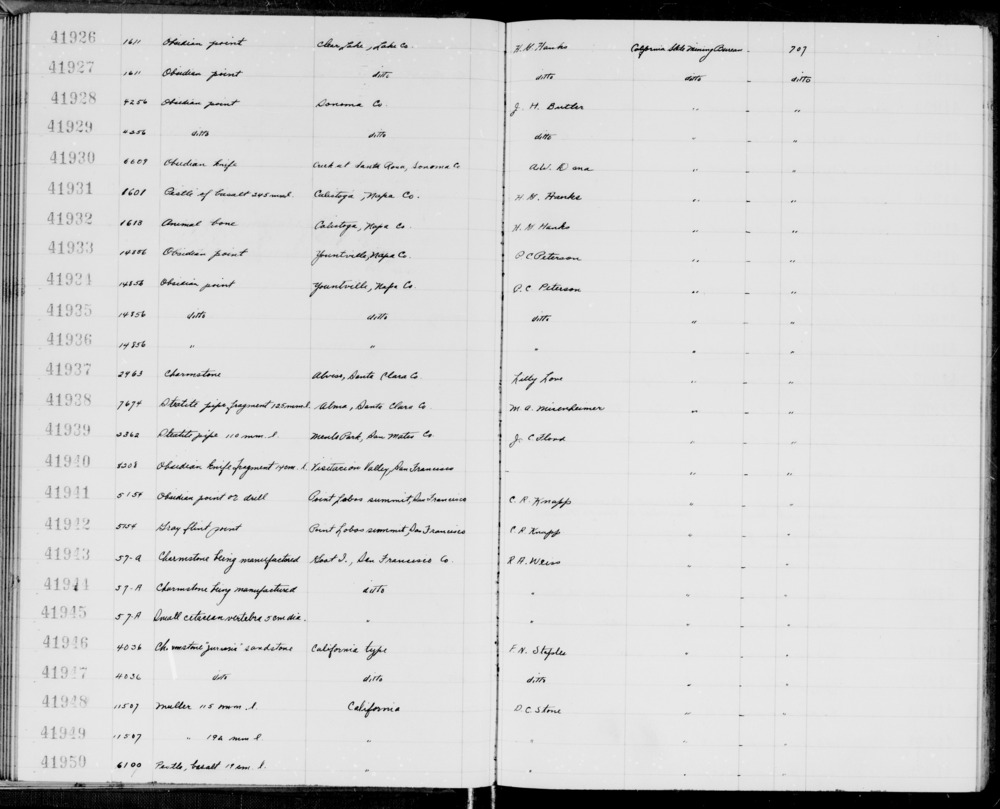 41926 1611 Obsidian point Clear Lake, Lake Co. H. G. Hanks California State Mining Bureau 707
41927 1611 Obsidian point ditto ditto ditto - ditto
41928 4256 Obsidian point Sonoma Co. J. H. Butler " - "
41929 4256 ditto ditto ditto " - "
41930 6609 Obsidian knife Creek at Santa Rosa, Sonoma Co A.W. Dana " - "
41931 1601 Pestle of basalt 245 mm l. Calistoga, Napa Co. H. G. Hanks " - "
41932 1613 Animal bone Calistoga, Napa Co. H. G. Hanks " - "
41933 14856 Obsidian point Yountville, Napa Co. P C Peterson " - "
41934 14856 Obsidian point Yountville, Napa Co. P. C. Peterson " - "
41935 14856 ditto ditto ditto " - "
41936 14856 " " " " - "
41937 2963 Charmstone Alviso, Santa Clara Co. Lolly Love " - "
41938 7674 Steatite pipe, fragment 125 mm l. Alma, Santa Clara Co. M. A. Misenheimer " - "
41939 2362 Steatite pipe 110 mm. l. Menlo Park, San Mateo Co J. C Flood " - "
41940 8208 Obsidian knife fragment 4 cm. l. Visitacion Valley, San Francisco - " "
41941 5154 Obsidian point or drill Point Lobos summit, San Francisco C. R. Knapp " - "
41942 5154 Gray flint point Point Lobos summit, San Francisco C. R. Knapp " - "
41943 57-A Charmstone being manufactured Goat I., San Francisco Co. R. A. Weiss " - "
41944 57-A Charmstone being manufactured ditto " " - "
41945 57-A Small cetacean vertebra 5 cm dia. " " " - "
41946 4036 Charmstone "Jurassic" sandstone California type F. N. Staples " - "
41947 4036 ditto ditto ditto " - "
41948 11507 Muller 115 mm. l. California D. C Stone " - "
41949 11507 " 192 mm l " " " - "
41950 6100 Pestle, basalt 19 cm. l. " " " - "